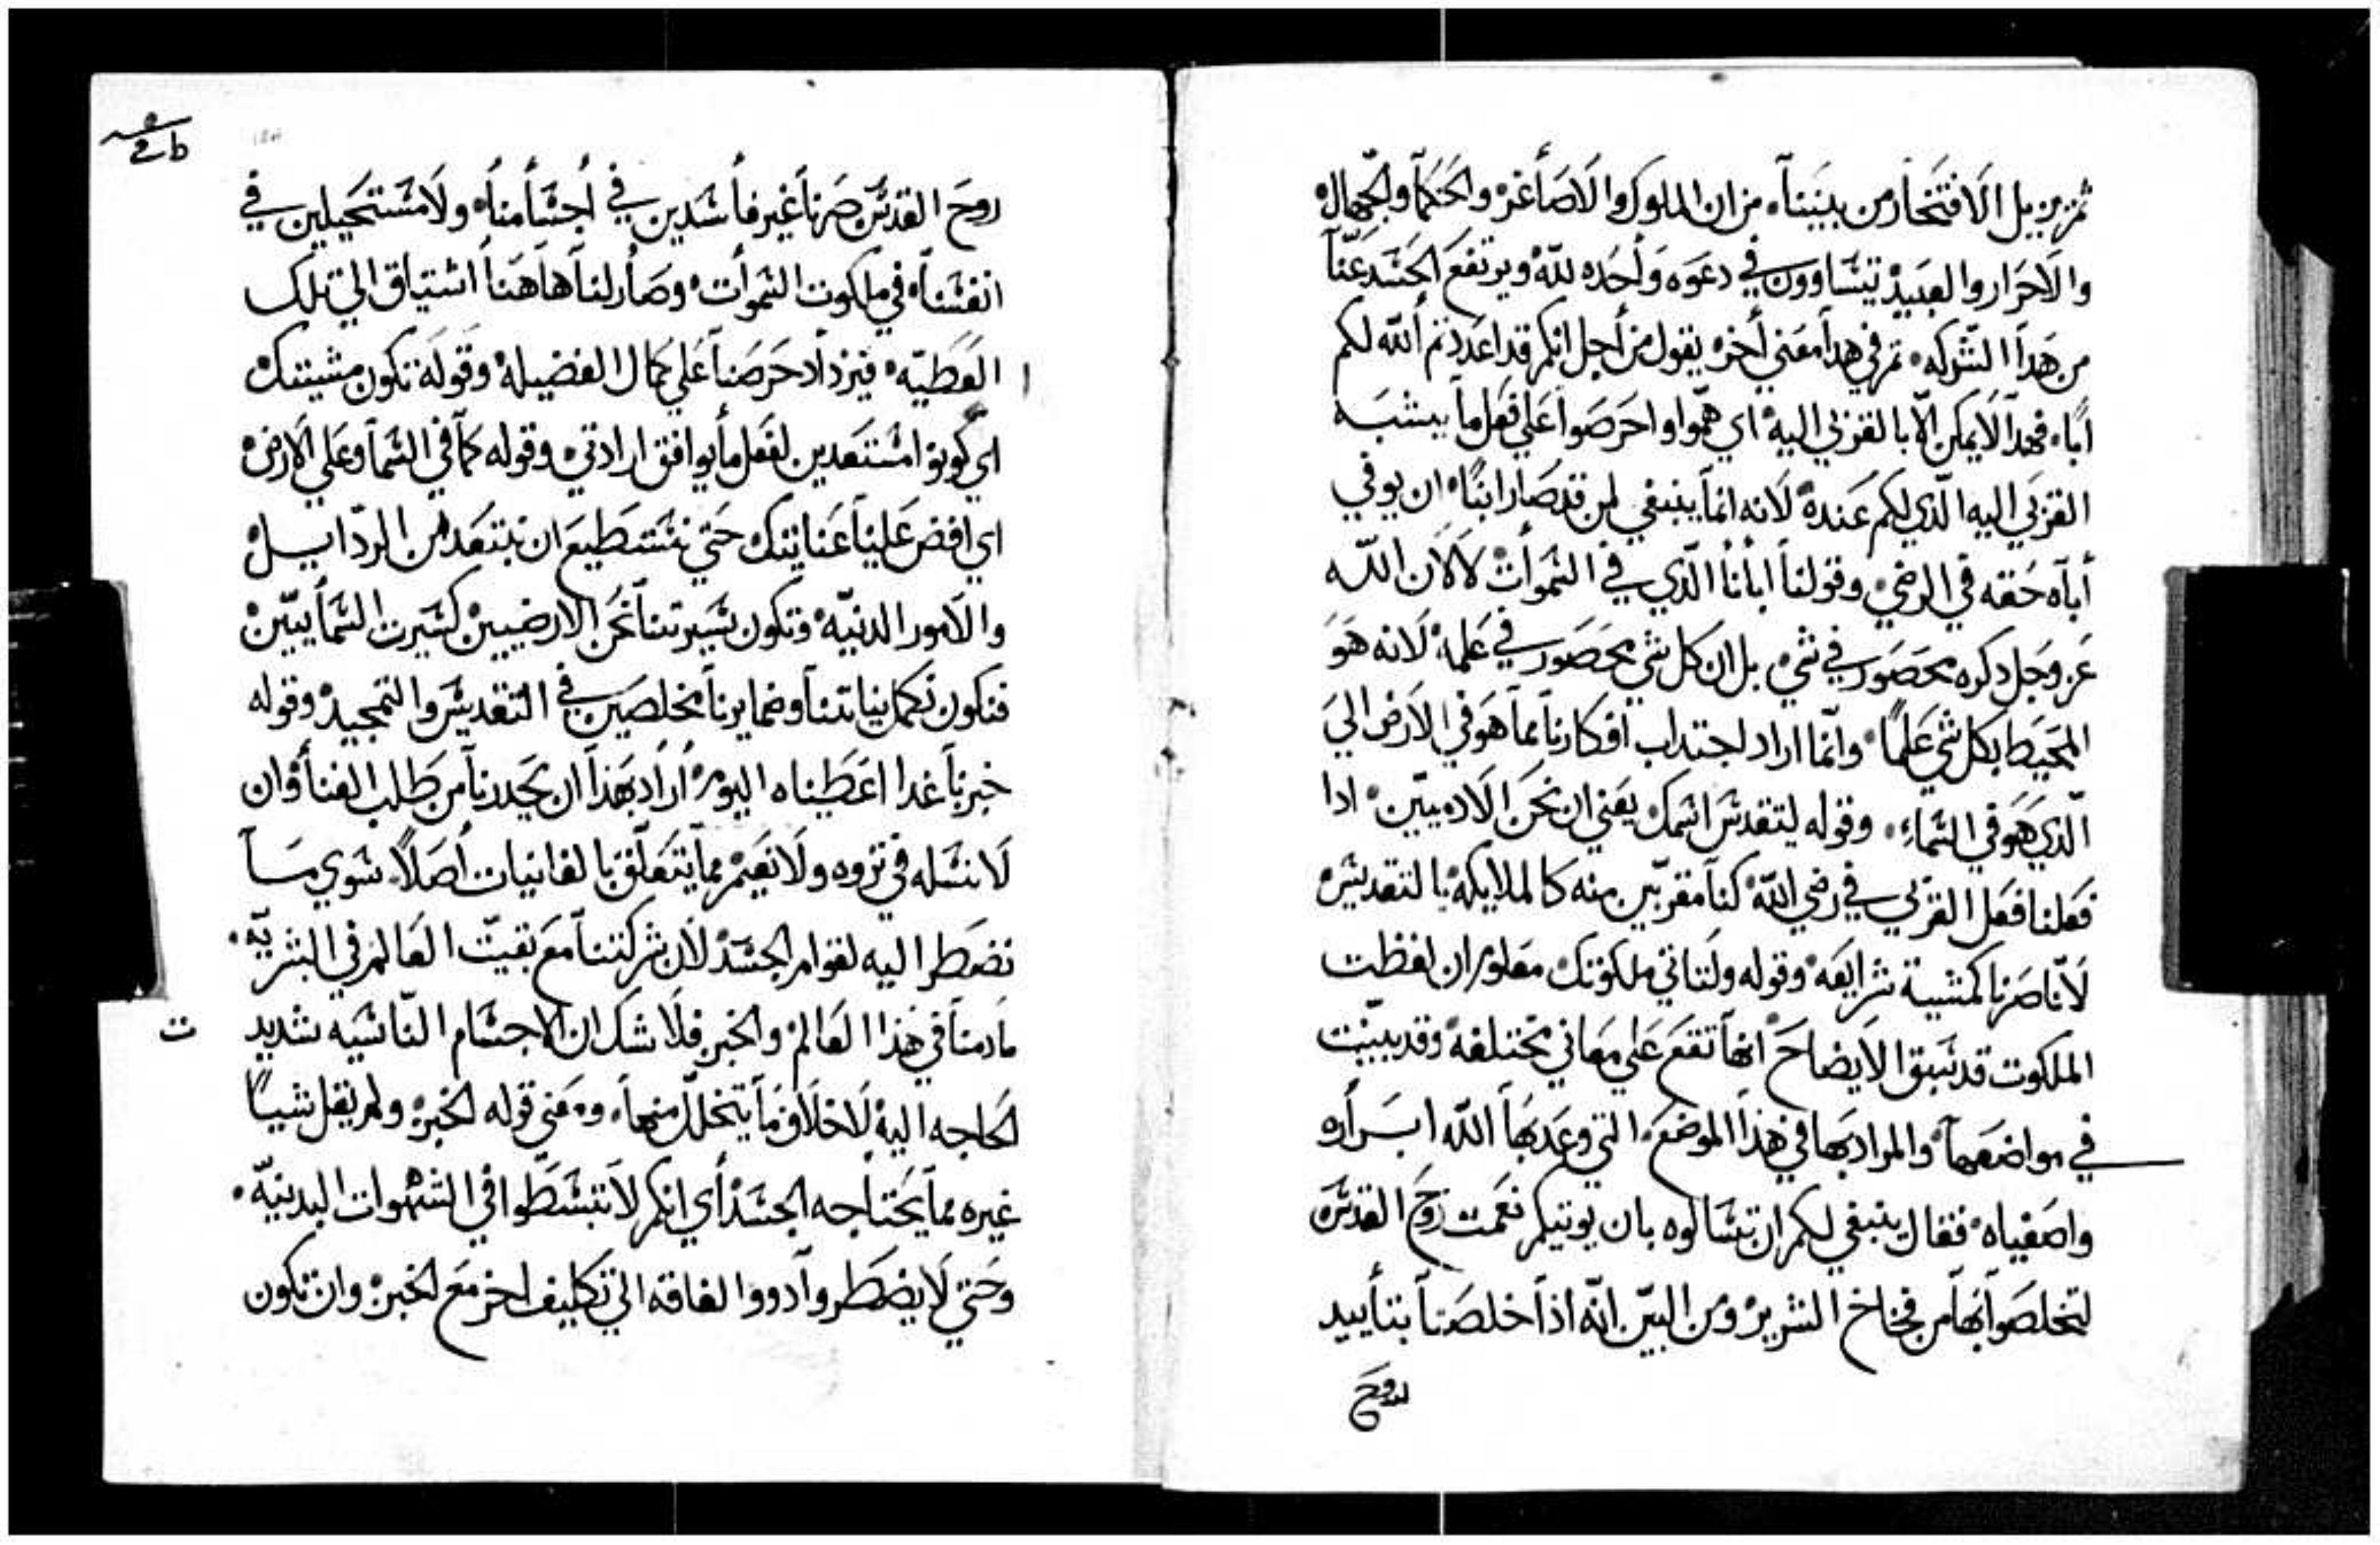 ثم يزيل الافتخار من بيننا. من ان الملوك والاصاغر والحكما والجهال
والاحرار والعبيد يتساوون في دعوه واحده لله ويرتفع الحسد عنا
من هدا الشركه. ثم في هدا معني اخر يقول من أجل انكم قد اعددتم الله لكم
ابًا. فهدا لايمكن الّا بالقربي اليه اي همّوا واحرصوا علي فعل ما يشبه
القربي اليه الّدي لكم عنده لانه انما ينبغي لمن قد صار ابنًا ان يوفي
أباه حقه في الرضي وقولنا ابانا الّدي في السموات لا لان اللّه
عز وجل دكره محصور في شي بل ان كل شي محصور في علمه لانه هو
المحيط بكل شي علمًا وانّما اراد اجتداب افكارنا مما هو في الارض الي
الّدي هو في السماءِ. وقوله ليتقدس اسمك يعني ان نحن الادميّين ادا
فعلنا فعل القربي في رضي اللّه كنا مقربّين منه كالملايكه بالتقديس
لانّا صرنا كمشيية شرايعه وقوله ولتاتي ملكوتك معلوم ان لفظت
الملكوت قد سبق الايضاح انها تقع علي معاني مختلفه وقد بينت
في مواضعها والمراد بها في هذا الموضع. التي وعد بها اللّه ابراره
واصفياه فقال ينبغي لكم ان تسالوه بان يوتيكم نعمت روح القدس
لتخلصوا بها من فخاخ الشرير ومن البيّن انّه اذا خلصنا بتأييد
روح
2b
روح القدس صرنا غير فاسدين في أجسامنا. ولا مستحيلين في
انفسنا في ملكوت السموات وصار لنا هاهنا اشتياق الي تلك
العطيّه فيزداد حرصنا علي كمال الفضيله وقوله تكون مشيتك
اي كونوا مستعدين لفعل ما يوافق ارادتي وقوله كما في السما وعلي الارض
اي افض علينا عنايتك حتي نستطيع ان نبتعد من الردّايل
والامور الدنيّه وتكون سيرتنا نحن الارضيين كسيرت السماييّن
فنكون بكمل نياتنا وضمايرنا مخلصين في التقديس والتمجيد وقوله
خبزنا غدا اعطيناه اليوم اراد بهذا ان يحدرنا من طلب الغنا وان
لا نسله في تروه ولا نعيم مما يتعلّق بالفانيات أصلاً. سوي ما
نضطر اليه لقوام الجسد لان شركتنا مع بقيّت العالم في البشريّه.
مادمنا في هذا العالم والخبز فلا شك ان الاجسام النّاسيه شديد
ت
الحاجه اليه لاخلاف ما يتحلّل منها. ومعني قوله الخبز ولم يقل شياً
غيره مما يحتاجه الجسد أي انكم لا تتبسّطوا في الشهوات البدنيّه.
وحتي لا يضطروا دووا الفاقه الي تكليف اخر مع الخبز وان تكون